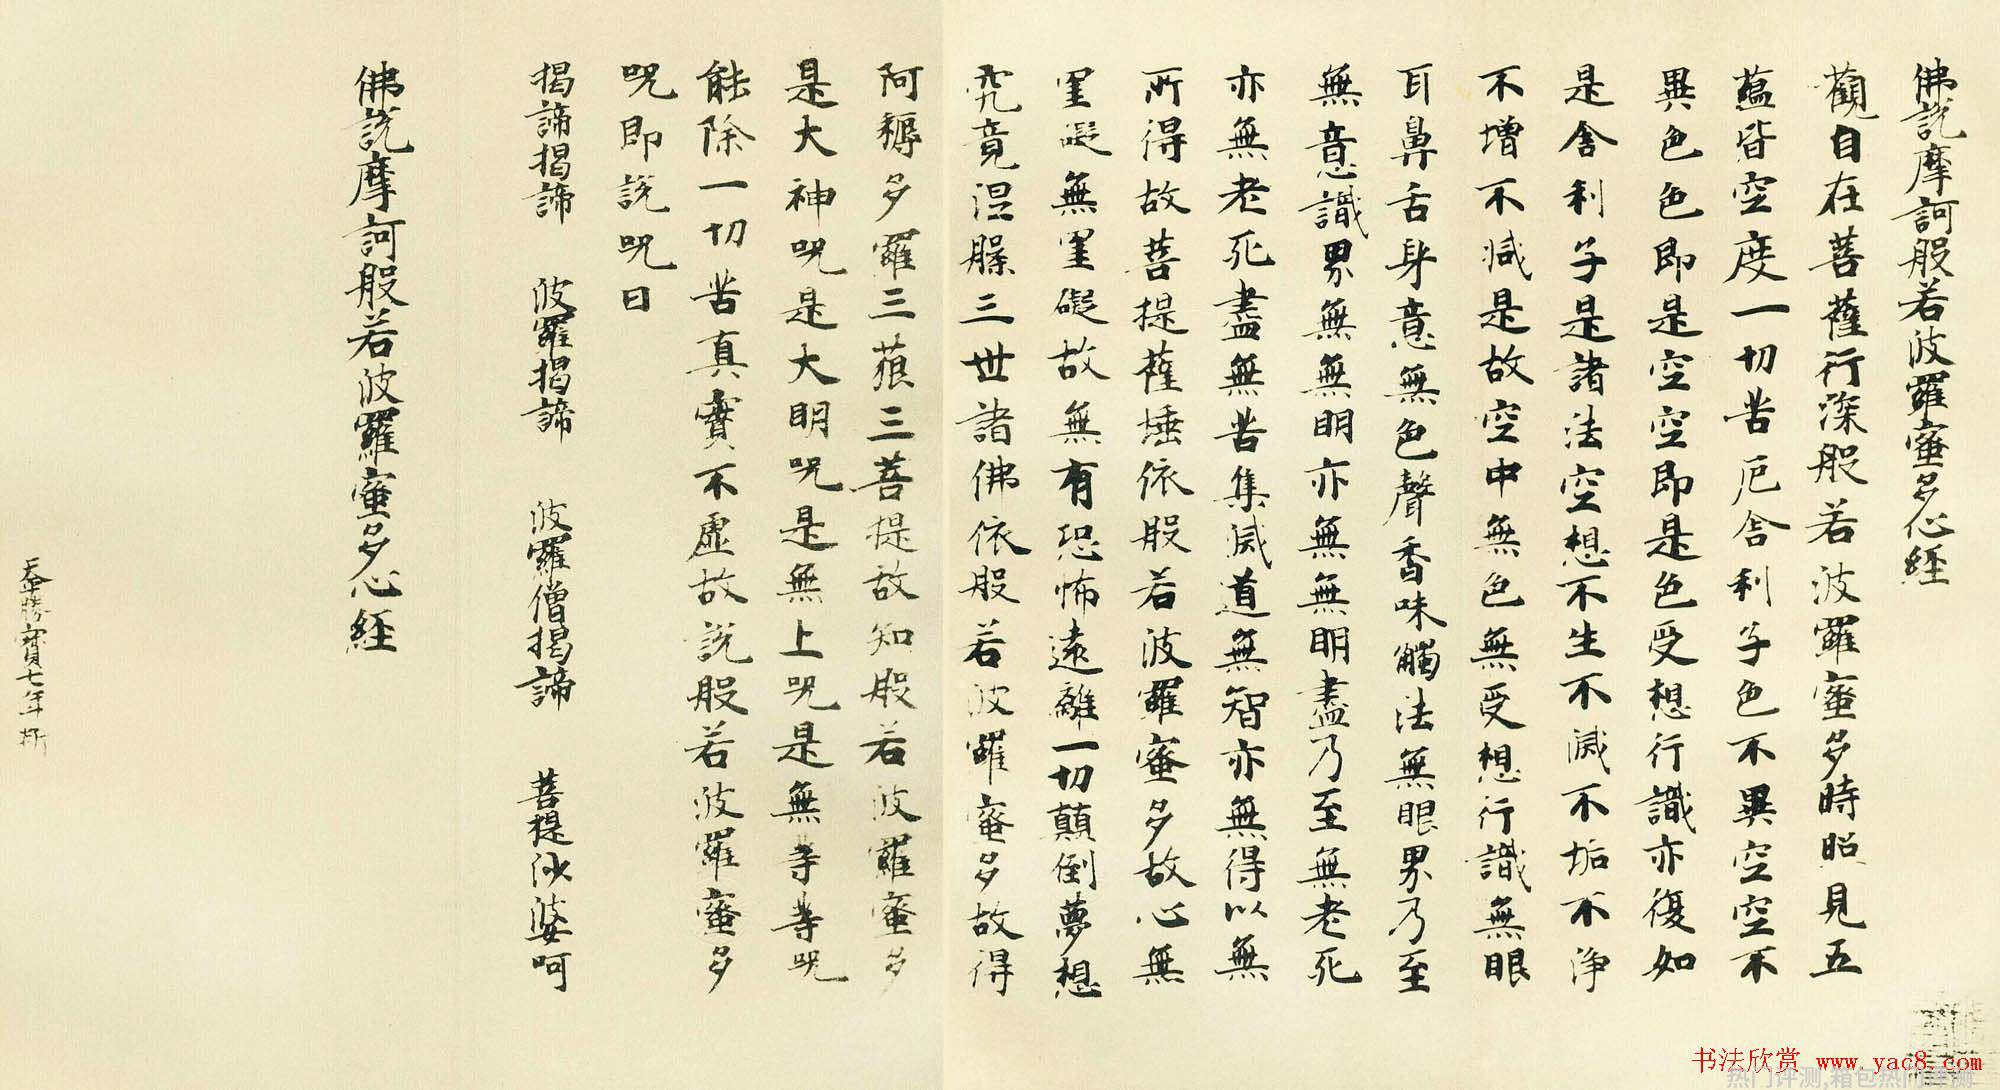 佛說摩訶般若波羅蜜多心經
觀自在菩薩行深般若波羅蜜多時照見五
蘊皆空度一切苦厄舍利子色不異空空不
異色色即是空空即是色受想行識亦復如
是舍利子是諸法空想不生不滅不垢不淨
不增不減是故空中無色無受想行識無眼
耳鼻舌身意無色聲香味觸法無眼界乃至
無意識界無無明亦無無明盡乃至無老死
亦無老死盡無苦集滅道無智亦無得以無
所得故菩提薩埵依般若波羅蜜多故心無
罣礙無罣礙故無有恐怖遠離一切顛倒夢想
究竟涅槃三世諸佛依般若波羅蜜多故得
阿耨多羅三藐三菩提故知般若波羅蜜多
是大神呪是大明呪是無上呪是無等等呪
能除一切苦真實不虛故說般若波羅蜜多
呪即說呪曰
揭諦揭諦 波羅揭諦 波羅僧揭諦 菩提沙婆呵
佛說摩訶般若波羅蜜多心經
勝寶七年
书法欣赏 www.yac8.com
热门评测,箱包热门评测